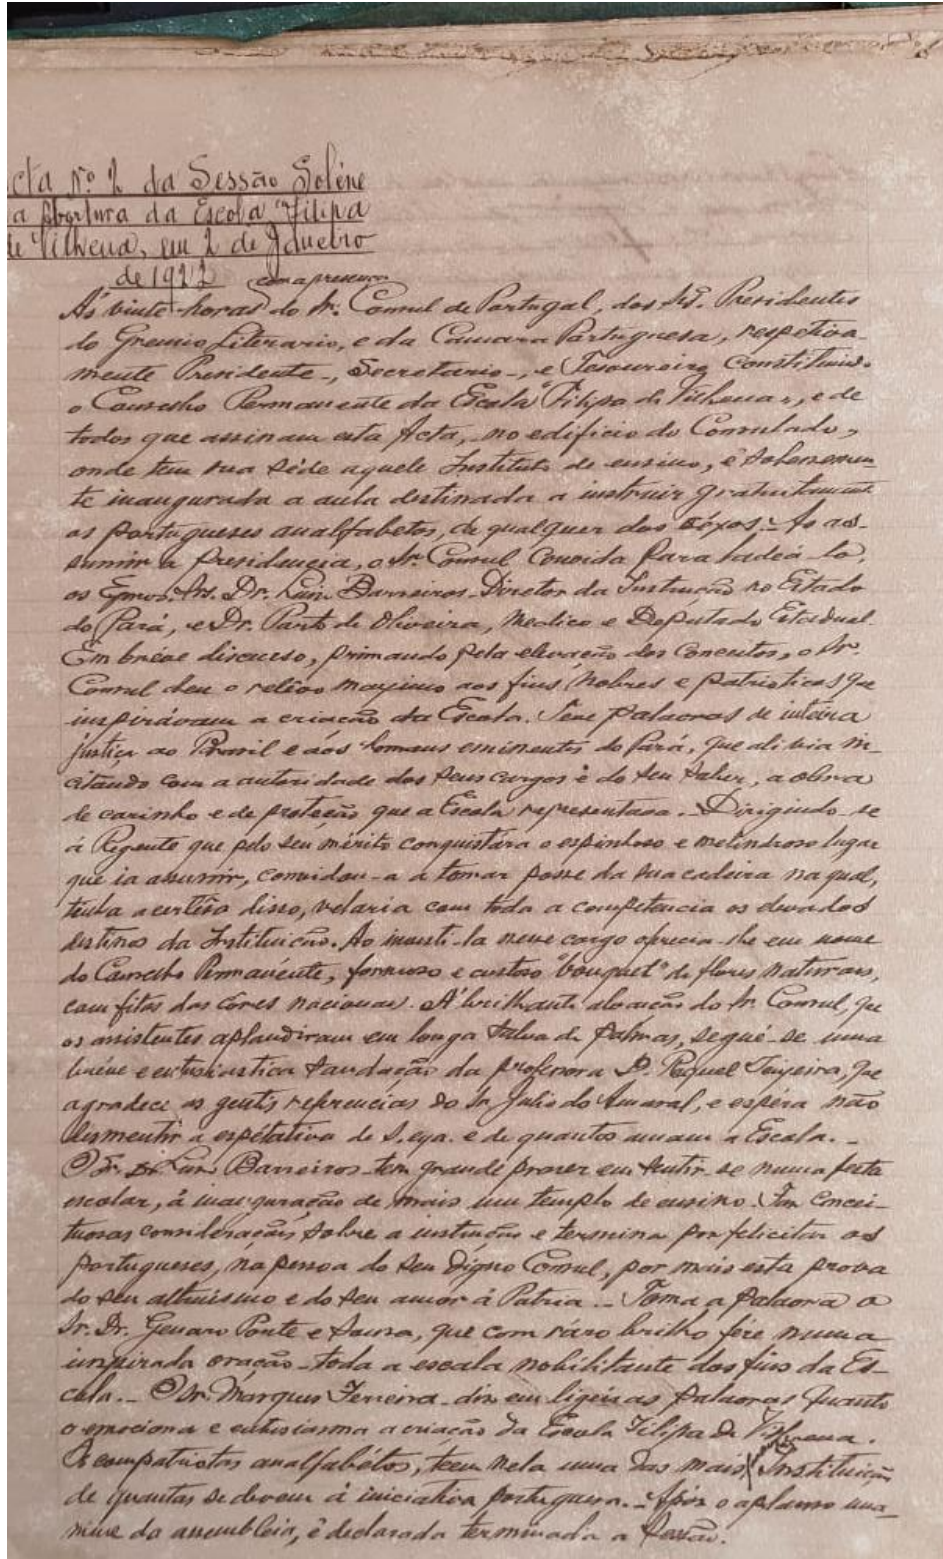 cta Nº 2 da Sessão Soléne
a Abertura da Escola "Filipa
de Vilhena, em 2 de Janeiro
de 1922
com a presença
Ás vinte horas do Sr. Consul de Portugal, dos Presidentes
do Gremio Literario, e da Camara Portuguesa, respetiva-
mente Presidente-, Secretario-, e Tesoureiro Constituindo
o Conselho Permanente da Escola "Filipa de Vilhena", e de
todos que assinam esta Acta, no edificio do Consulado,
onde tem sua séde aquele Instituto de ensino, é solenemen-
te inaugurada a aula destinada a instruir gratuitamente
os portugueses analfabetos, de qualquer dos séxos.- Ao as-
sumir a presidencia, o Sr. Consul convida para ladeá-lo,
os Exmos. Srs. Dr. Luiz Barreiros-Diretor da Instrução no Estado
do Pará, e Dr. Porto de Oliveira, Medico e Deputado Estadual.
Em bréve discurso, primando pela elevação dos conceitos, o Sr.
Consul deu o relêvo maximo aos fins nobres e patrioticos que
inspirávam a criação da Escola. Teve palavras de inteira
justiça ao Brasil e aos homens eminentes do Pará, que ali via in-
citando com a autoridade dos seus cargos e do seu saber, a obra
de carinho e de proteção que a Escola representava.- Dirigindo-se
á Regente que pelo seu mérito conquistára o espinhoso e melindroso lugar
que ia assumir, convidou-a a tomar posse da sua cadeira na qual,
tinha a certêsa disso, velaria com toda a competencia os elevados
destinos da Instituição. Ao investi-la nesse cargo oferecia-lhe em nome
do Conselho Permanente, formoso e custoso "bouquet" de flores naturais,
com fitas das côres nacionais. Á brilhante alocução do Sr. Consul, que
os assistentes aplaudiram em longa salva de palmas, segue-se uma
bréve e entusiastica saudação da professora D. Raquel Teixeira, que
agradece as gentis referencias do Sr. Julio do Amaral, e espéra não
desmentir a espétativa de S. exa. e de quantos amam a Escola.-
O Sr. Dr Luiz Barreiros tem grande prazer em sentir-se numa festa
escolar, á inauguração de mais um templo de ensino. Tem concei-
tuosas considerações sobre a instrução e termina por felicitar os
portugueses, na pessoa do seu digno Consul, por mais esta prova
do seu altruismo e do seu amor á Patria.- Toma a palavra o
Sr. Dr. Genaro Ponte e Sousa, que com ráro brilho fére numa
inspirada oração toda a escala nobilitante dos fins da Es-
cola.- O Sr. Marques Ferreira diz em ligeiras palavras quanto
o emociona e entusiasma a criação da Escola Filipa de Vilhena.
Os compatriotas analfabétos, teem nela uma das mais Instituição
de quantas se devem á iniciativa portuguesa.- Após o aplauso una-
nime da assembleia, é declarada terminada a sessão.